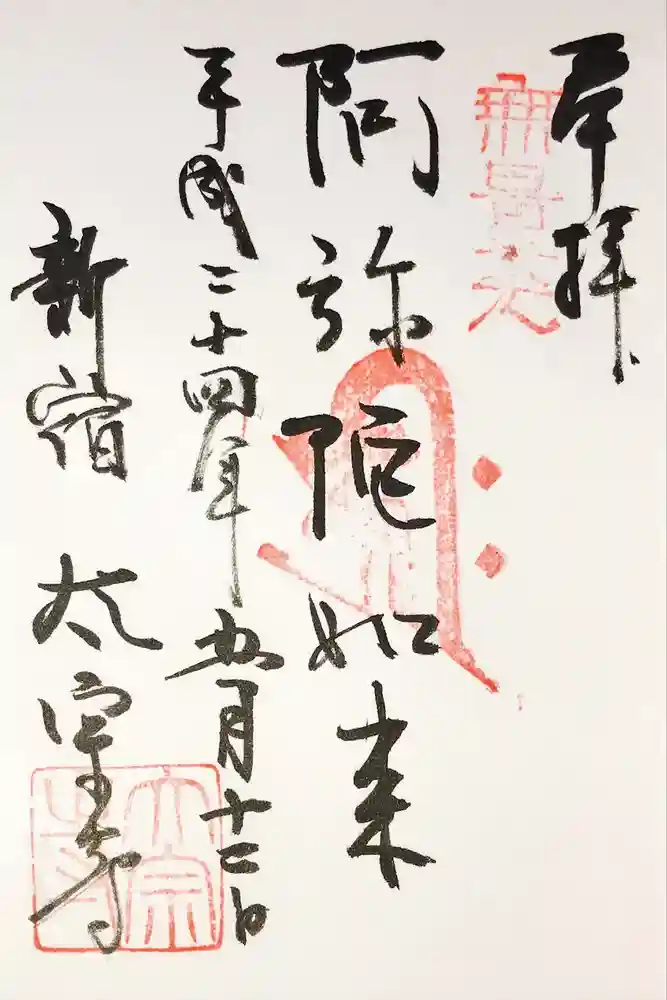 奉拝
無量光
阿弥陀如来
平成二十四年五月十二日
新宿 太宗寺
太宗